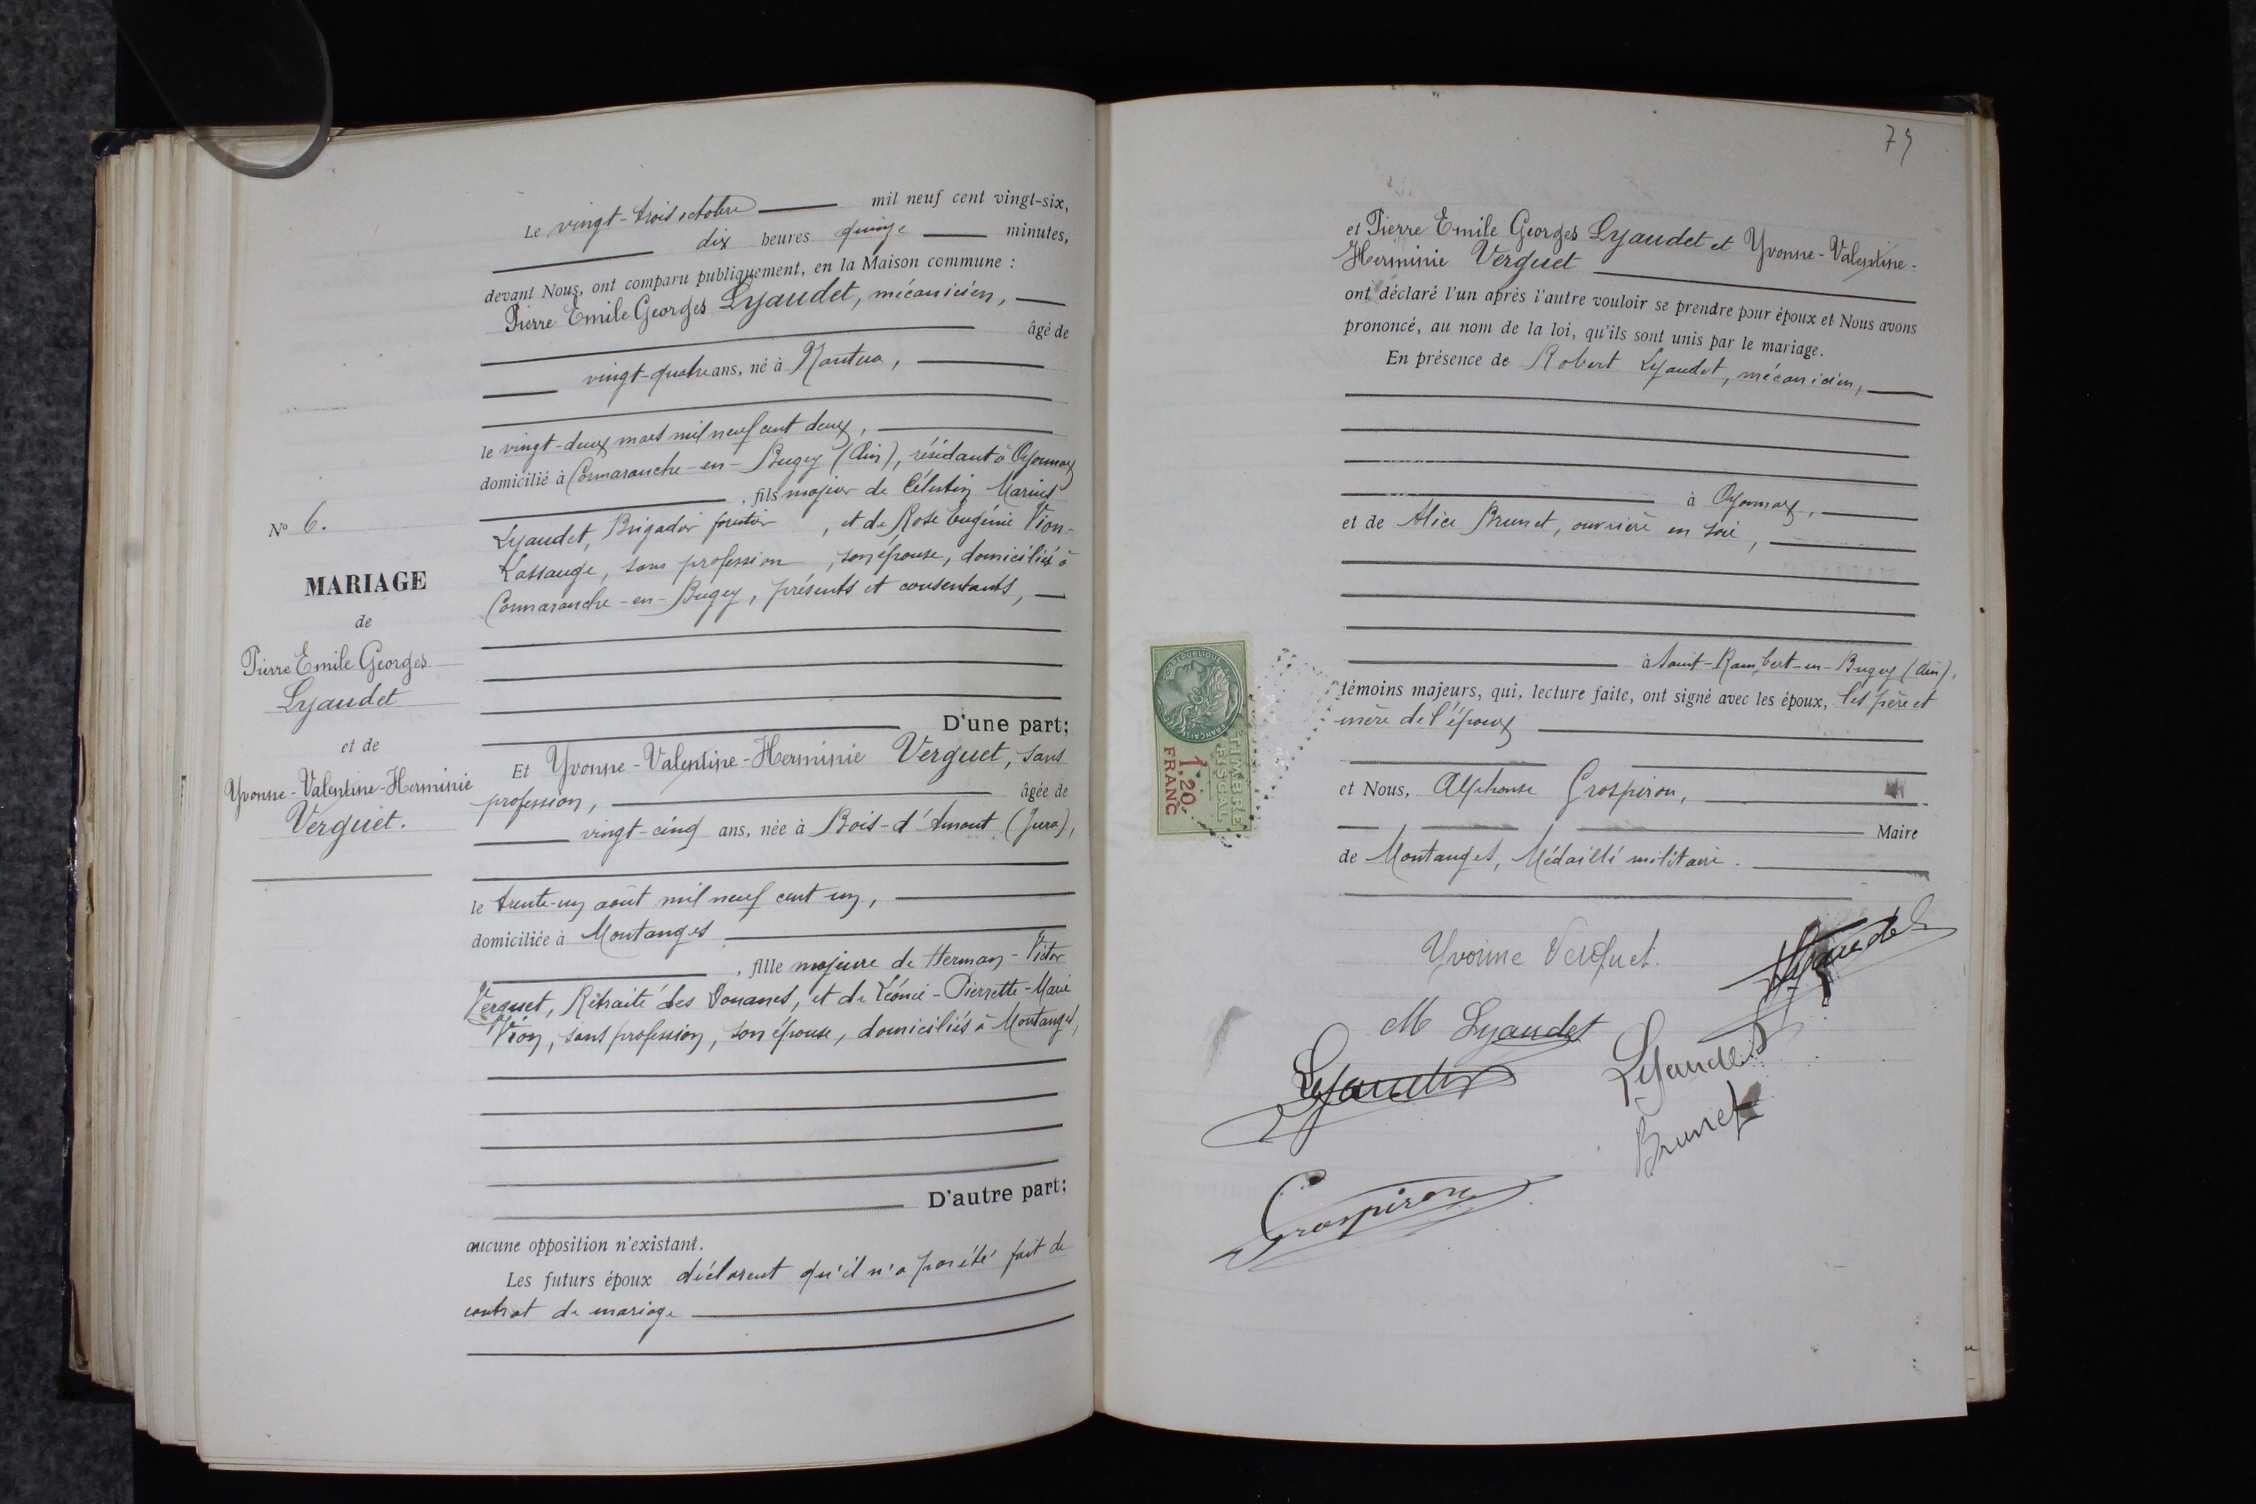 Le vingt-trois octobre mil neuf cent vingt-six,
dix heures quinze minutes,
devant Nous, ont comparu publiquement, en la Maison commune :
Pierre Emile Georges Lyaudet, mécanicien,
âgé de
vingt-quatre ans, né à Nantua,
le vingt-deux mars mil neuf cent deux,
domicilié à Cormaranche-en-Bugey (Ain), résidant à Oyonnax
, fils majeur de Célestin Marius
Lyaudet, Brigadier forestier, et de Rose Eugénie Vion-
Lassauge, sans profession, son épouse, domiciliés à
Cormaranche-en-Bugey, présents et consentants,
D'une part;
Et Yvonne-Valentine-Herminie Verguet, sans
profession, âgée de
vingt-cinq ans, née à Bois-d'Amont (Jura),
le trente-un août mil neuf cent un,
domiciliée à Montanges
, fille majeure de Herman-Victor
Verguet, Retraité des Douanes, et de Léonie-Pierrette-Marie
Vion, sans profession, son épouse, domiciliés à Montanges,
D'autre part;
aucune opposition n'existant.
Les futurs époux déclarent qu'il n'a pas été fait de
contrat de mariage
N° 6.
MARIAGE
de
Pierre Emile Georges
Lyaudet
et de
Yvonne-Valentine-Herminie
Verguet.
79
et Pierre Emile Georges Lyaudet et Yvonne-Valentine-
Herminie Verguet
ont déclaré l'un après l'autre vouloir se prendre pour époux et Nous avons
prononcé, au nom de la loi, qu'ils sont unis par le mariage.
En présence de Robert Lyaudet, mécanicien,
à Oyonnax,
et de Alice Brunet, ouvrière en soie,
à Saint-Rambert-en-Bugey (Ain),
témoins majeurs, qui, lecture faite, ont signé avec les époux, les père et
mère de l'époux
et Nous, Alphonse Grospiron,
Maire
de Montanges, Médaillé militaire.
REPUBLIQUE FRANÇAISE
TIMBRE
FISCAL
1,20
FRANC
Yvonne Verguet.
Lyaudet
M Lyaudet
Lyaudet
Lyaudet
Brunet
Grospiron